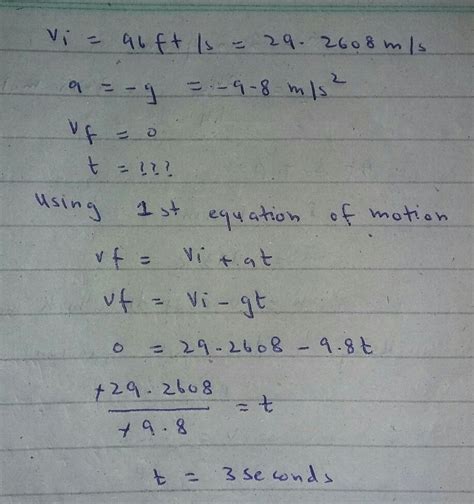 vi = 96 ft /s = 29.2608 m/s
a = -g = -9.8 m/s²
vf = 0
t = ???
Using 1st equation of motion
vf = vi + at
vf = vi - gt
0 = 29.2608 - 9.8t
+29.2608
+9.8
= t
t = 3 seconds